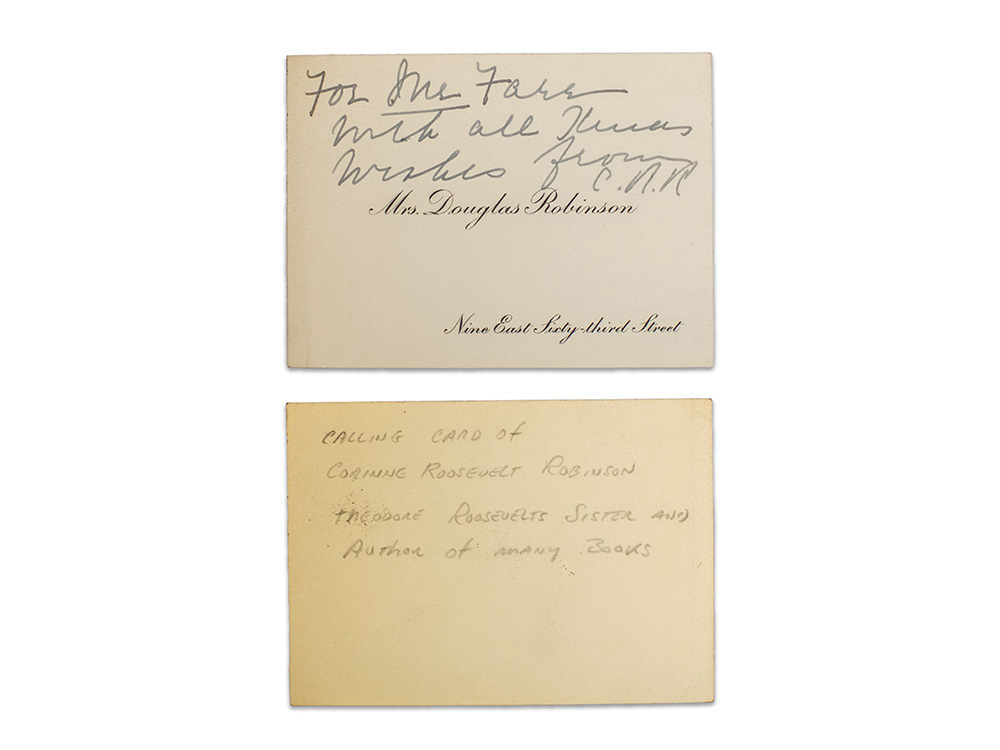 For Mr Farr
with all Xmas
wishes from
C.R.R
Mrs. Douglas Robinson
Nine East Sixty-third Street
CALLING CARD OF
CORINNE ROOSEVELT ROBINSON
THEODORE ROOSEVELTS SISTER AND
AUTHOR OF MANY BOOKS